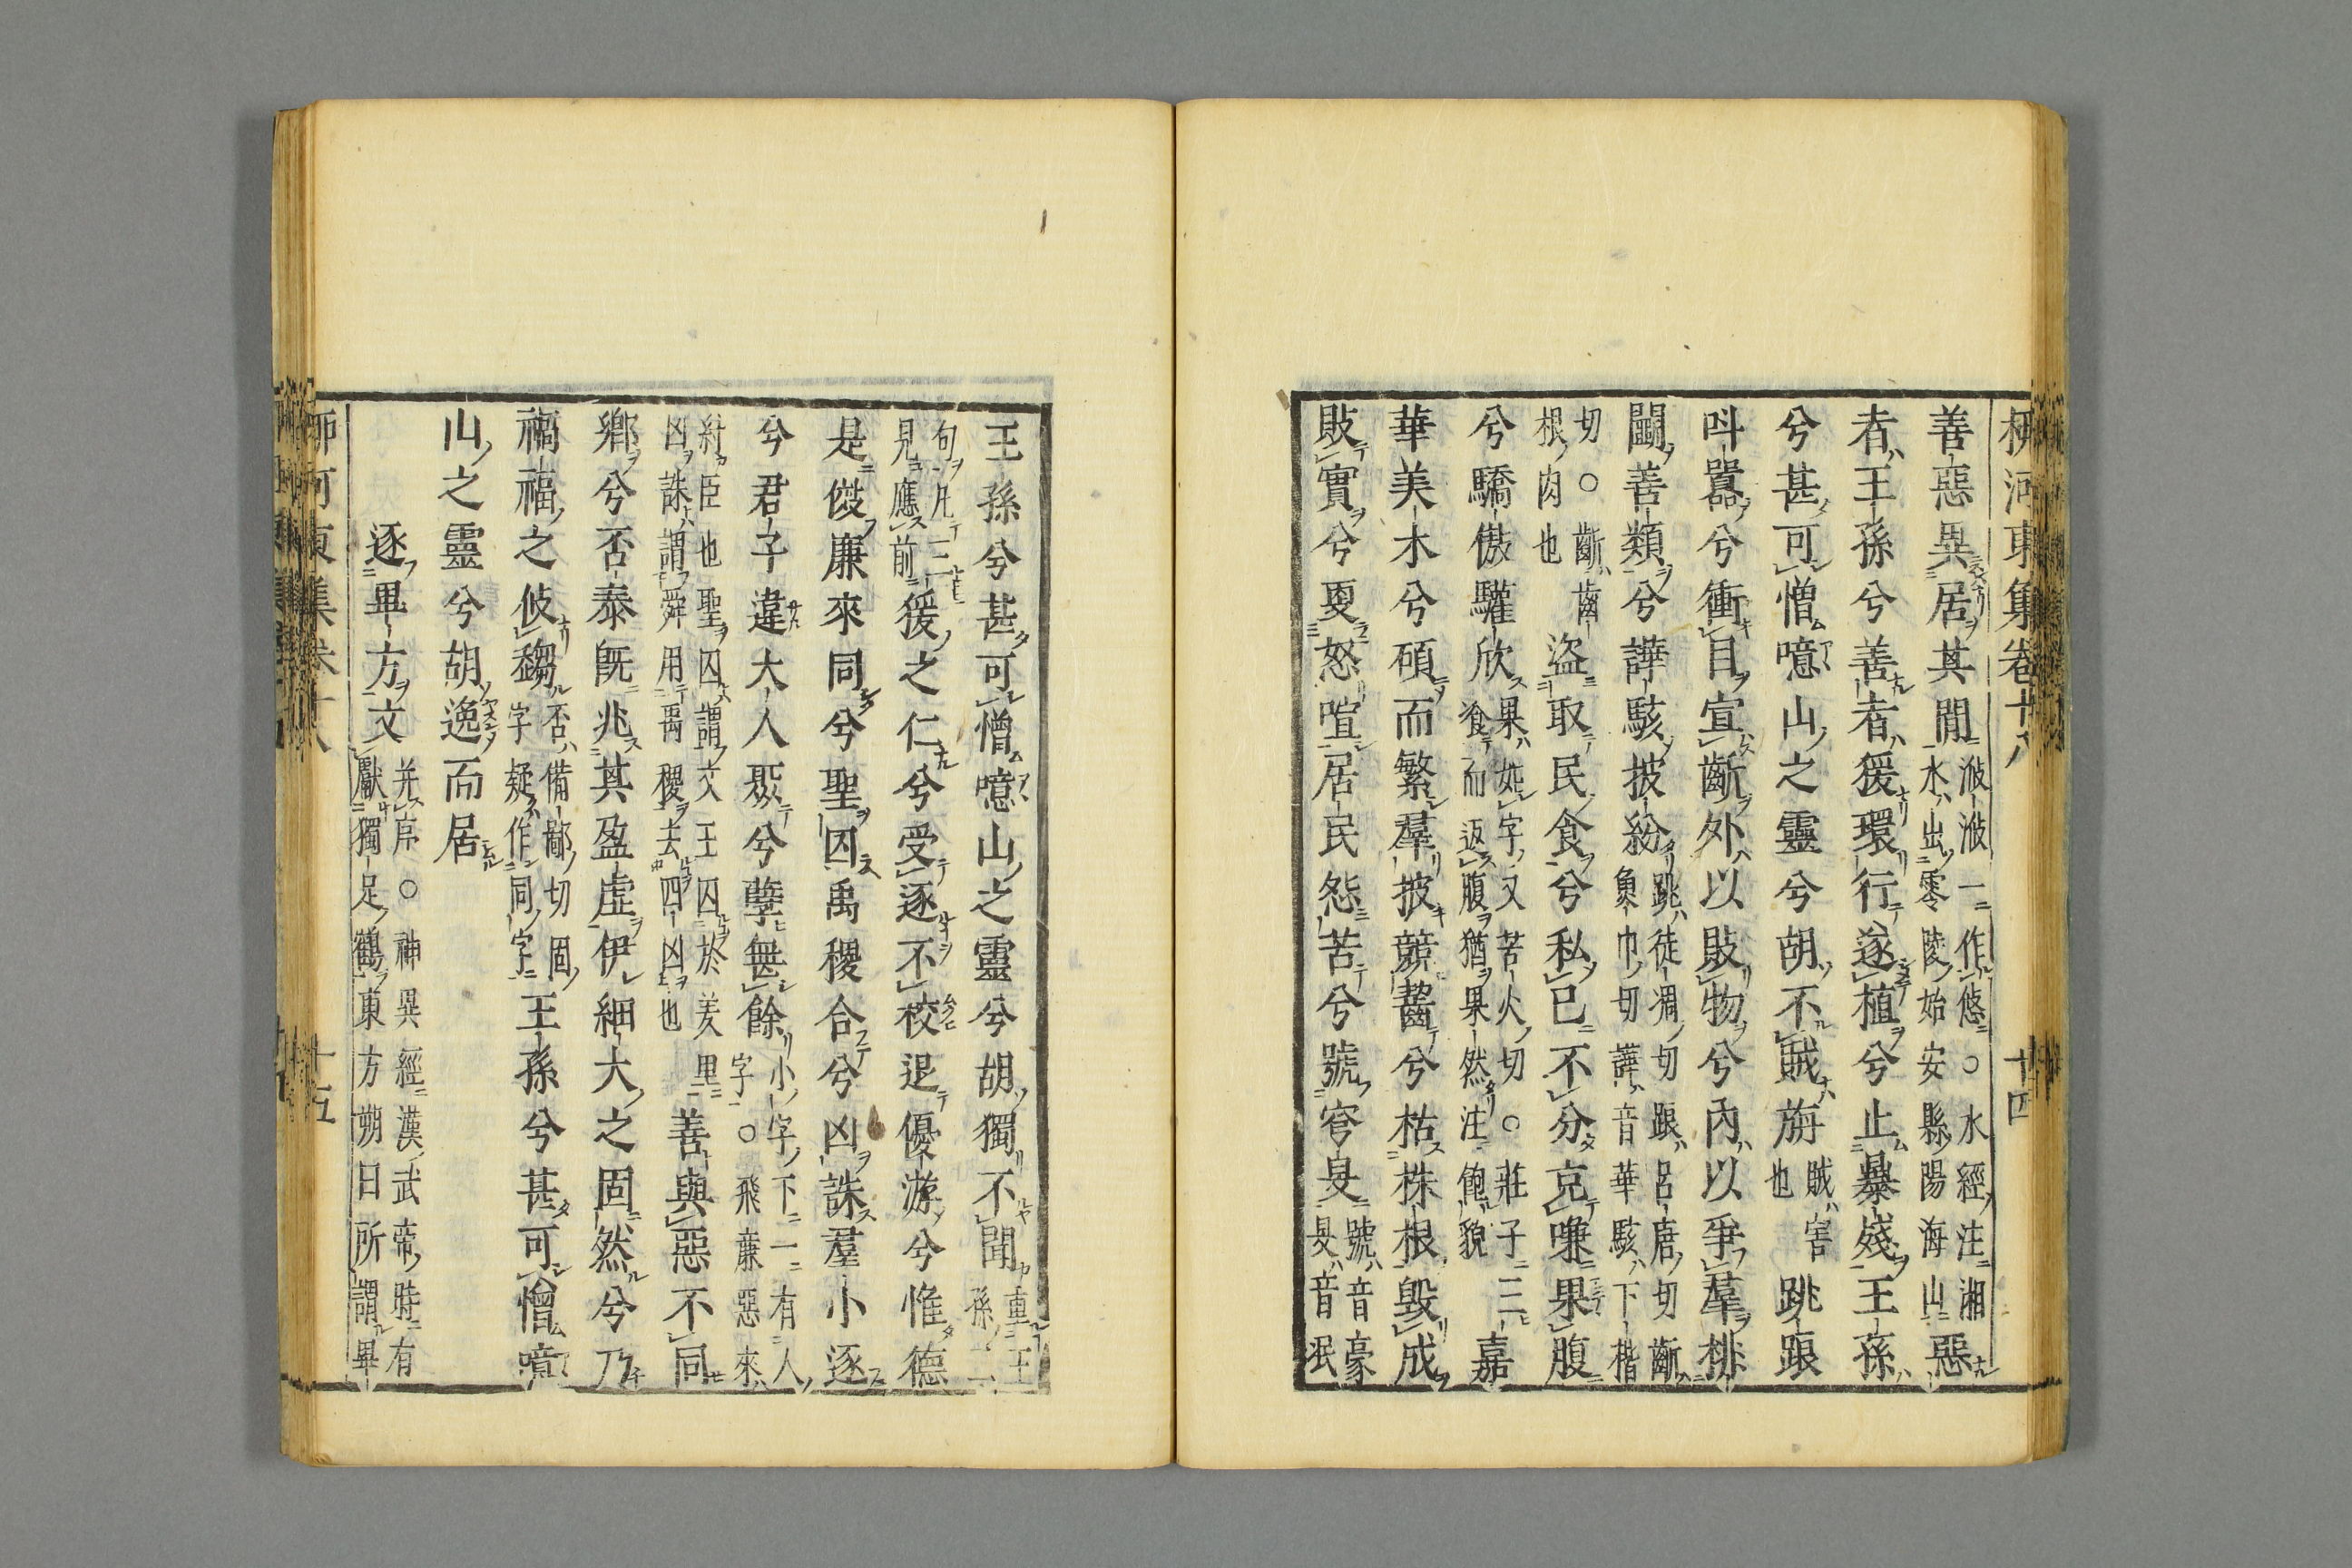 柳河東集卷十八 十四
善惡異居其間浟浟一作悠〇水經注湘
水出零陵始安縣陽海山惡
者王孫兮善者猨環行遂植兮止暴殘王孫
兮甚可憎噫山之靈兮胡不賊旃賊害
也跳踉
叫囂兮衝目宣齗外以敗物兮內以爭羣排
鬭善類兮譁駭披紛跳徒凋切踉呂唐切齗
魚巾切譁音華駭下楷
切〇齗齒
根肉也盜取民食兮私己不分充嗛果腹
兮驕傲驩欣果如字又苦火切〇莊子三
飡而返腹猶果然注飽貌嘉
華美木兮碩而繁羣披競齧兮枯株根毀成
敗實兮更怒喧居民怨苦兮號穹旻號音豪
旻音珉
王孫兮甚可憎噫山之靈兮胡獨不聞重王
孫二
句凡三
見應前猨之仁兮受逐不校退優游兮惟德
是傚廉來同兮聖囚禹稷合兮凶誅羣小逐
兮君子違大人聚兮孽無餘小字下一有人
字〇飛廉惡來
紂臣也聖囚謂文王囚於羑里
凶誅謂舜用禹稷去四凶也善與惡不同
鄉兮否泰既兆其盈虛伊細大之固然兮乃
禍福之攸趨否備鄙切固
字疑作同字王孫兮甚可憎噫
山之靈兮胡逸而居
逐畢方文并序〇神異經漢武帝時有
獻獨足鶴東方朔曰所謂畢
柳河東集卷十八 十五